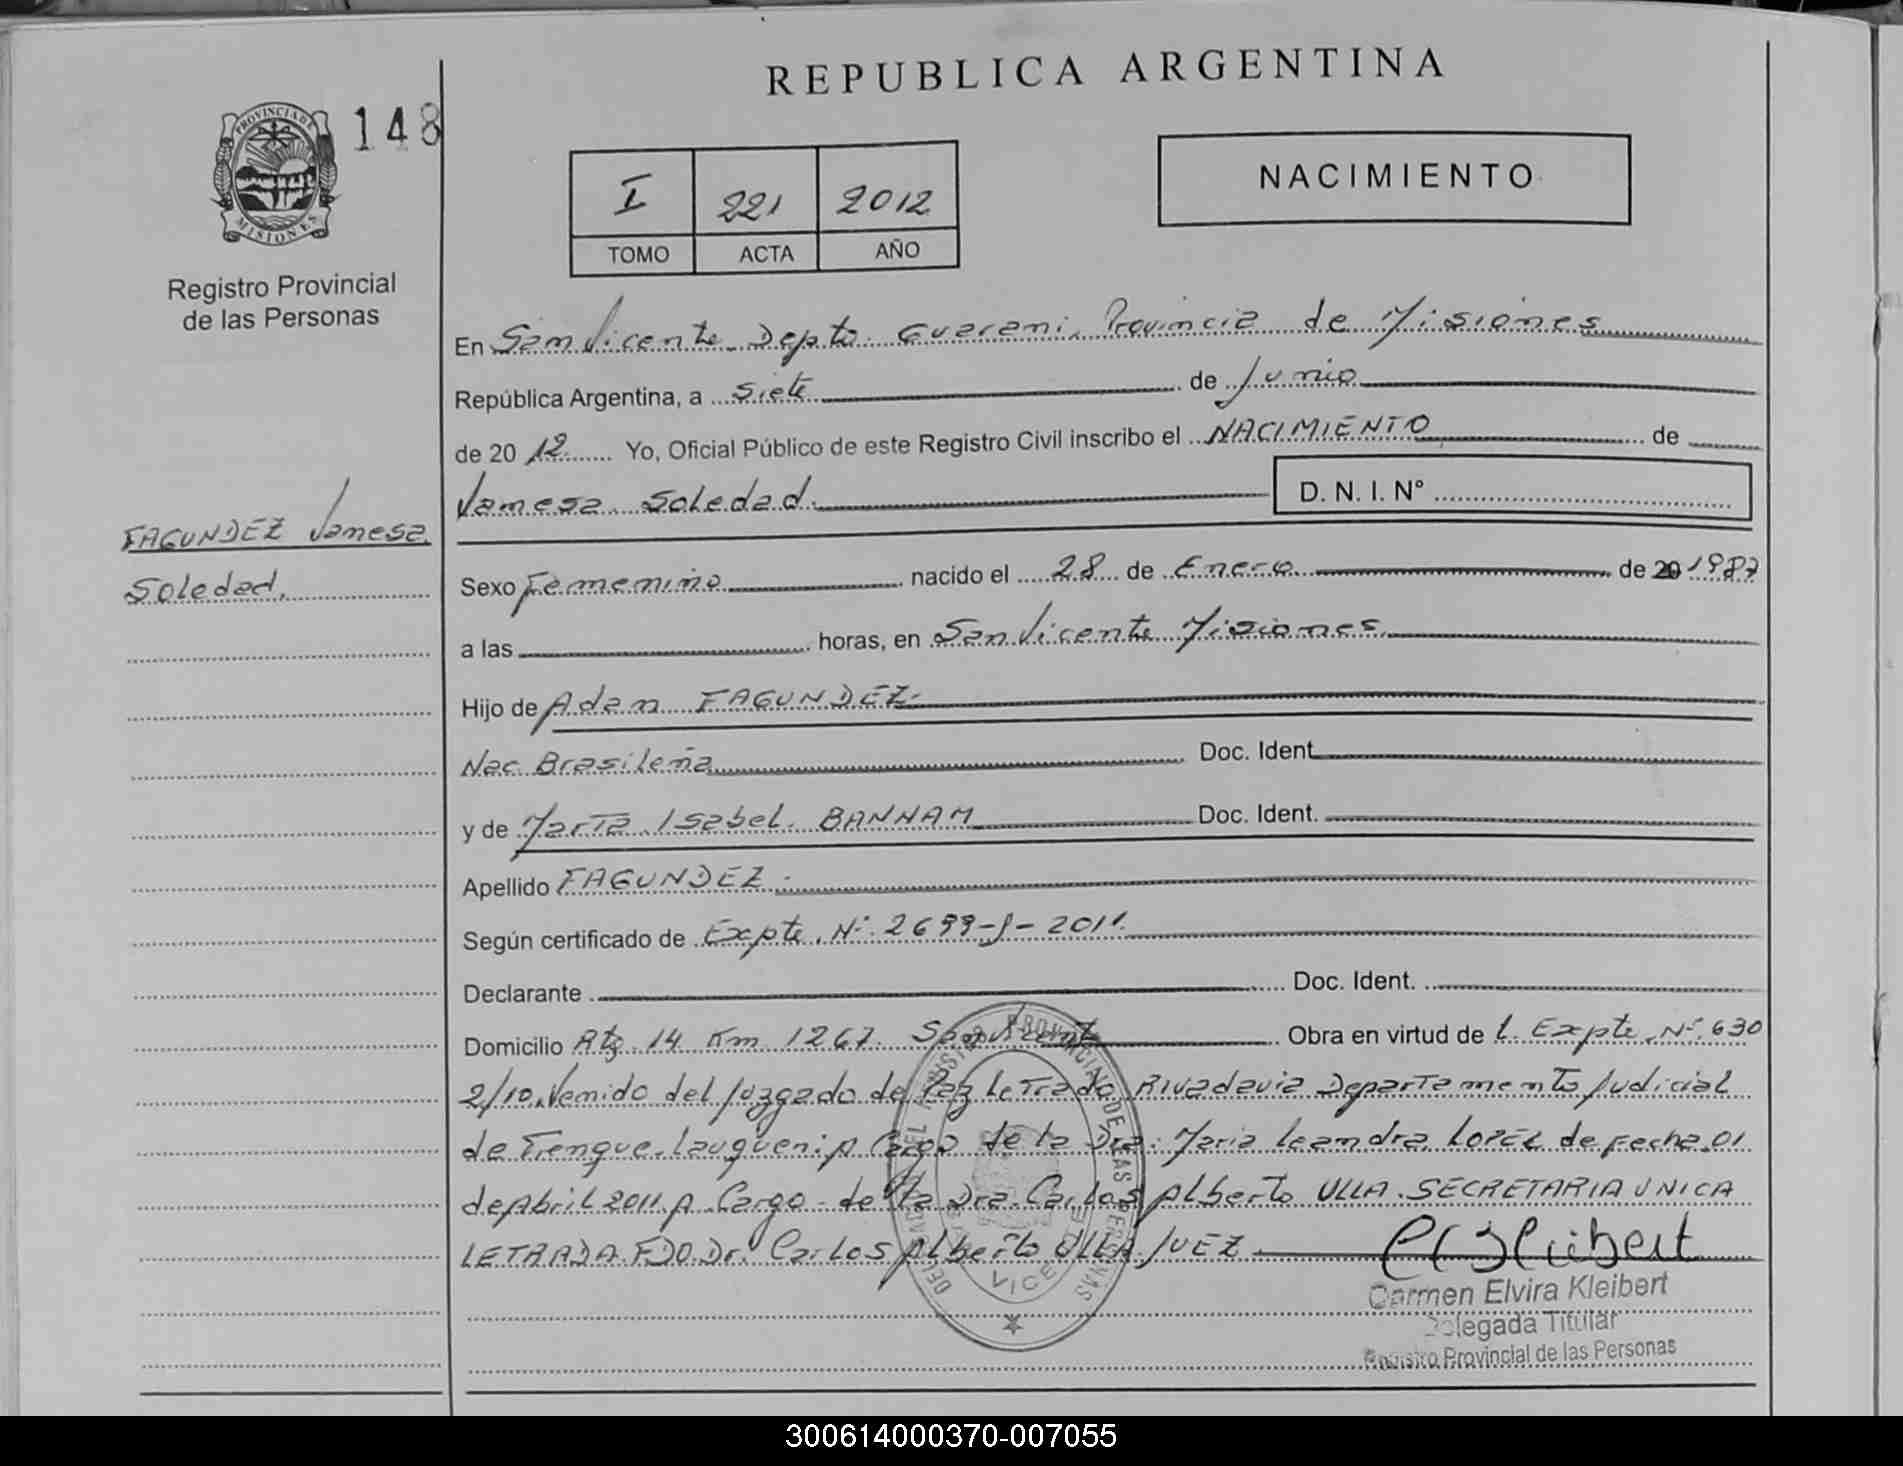 REPUBLICA ARGENTINA
PROVINCIA DE
MISIONES
148
Registro Provincial
de las Personas
I 221 2012
TOMO ACTA AÑO
NACIMIENTO
En San Vicente Depto. Guarani, Provincia de Misiones
República Argentina, a siete de Junio
de 2012 Yo, Oficial Público de este Registro Civil inscribo el NACIMIENTO de
Vanesa Soledad. D. N. I. Nº
FAGUNDEZ Vanesa
Soledad.
Sexo Femenino nacido el 28 de Enero de 20 1987
a las horas, en San Vicente Misiones
Hijo de Adan FAGUNDEZ.
Nac. Brasileña Doc. Ident.
y de Marta Isabel BANHAM Doc. Ident.
Apellido FAGUNDEZ.
Según certificado de Expte. Nº 2699-J-2011.
Declarante Doc. Ident.
Domicilio Rta. 14 Km 1267. San Vicente Obra en virtud de L. Expte. Nº 630
2/10. Venido del Juzgado de Paz Letrado Rivadavia Departamento Judicial
de Trenque Lauquen: A Cargo de la Dra. Maria Leandra LOPEZ de Fecha 01
de Abril 2011. A Cargo de la Dra. Carlos Alberto ULLA. SECRETARIA UNICA
LETRADA. FDO. Dr. Carlos Alberto ULLA JUEZ
Carmen Elvira Kleibert
Delegada Titular
Registro Provincial de las Personas
300614000370-007055